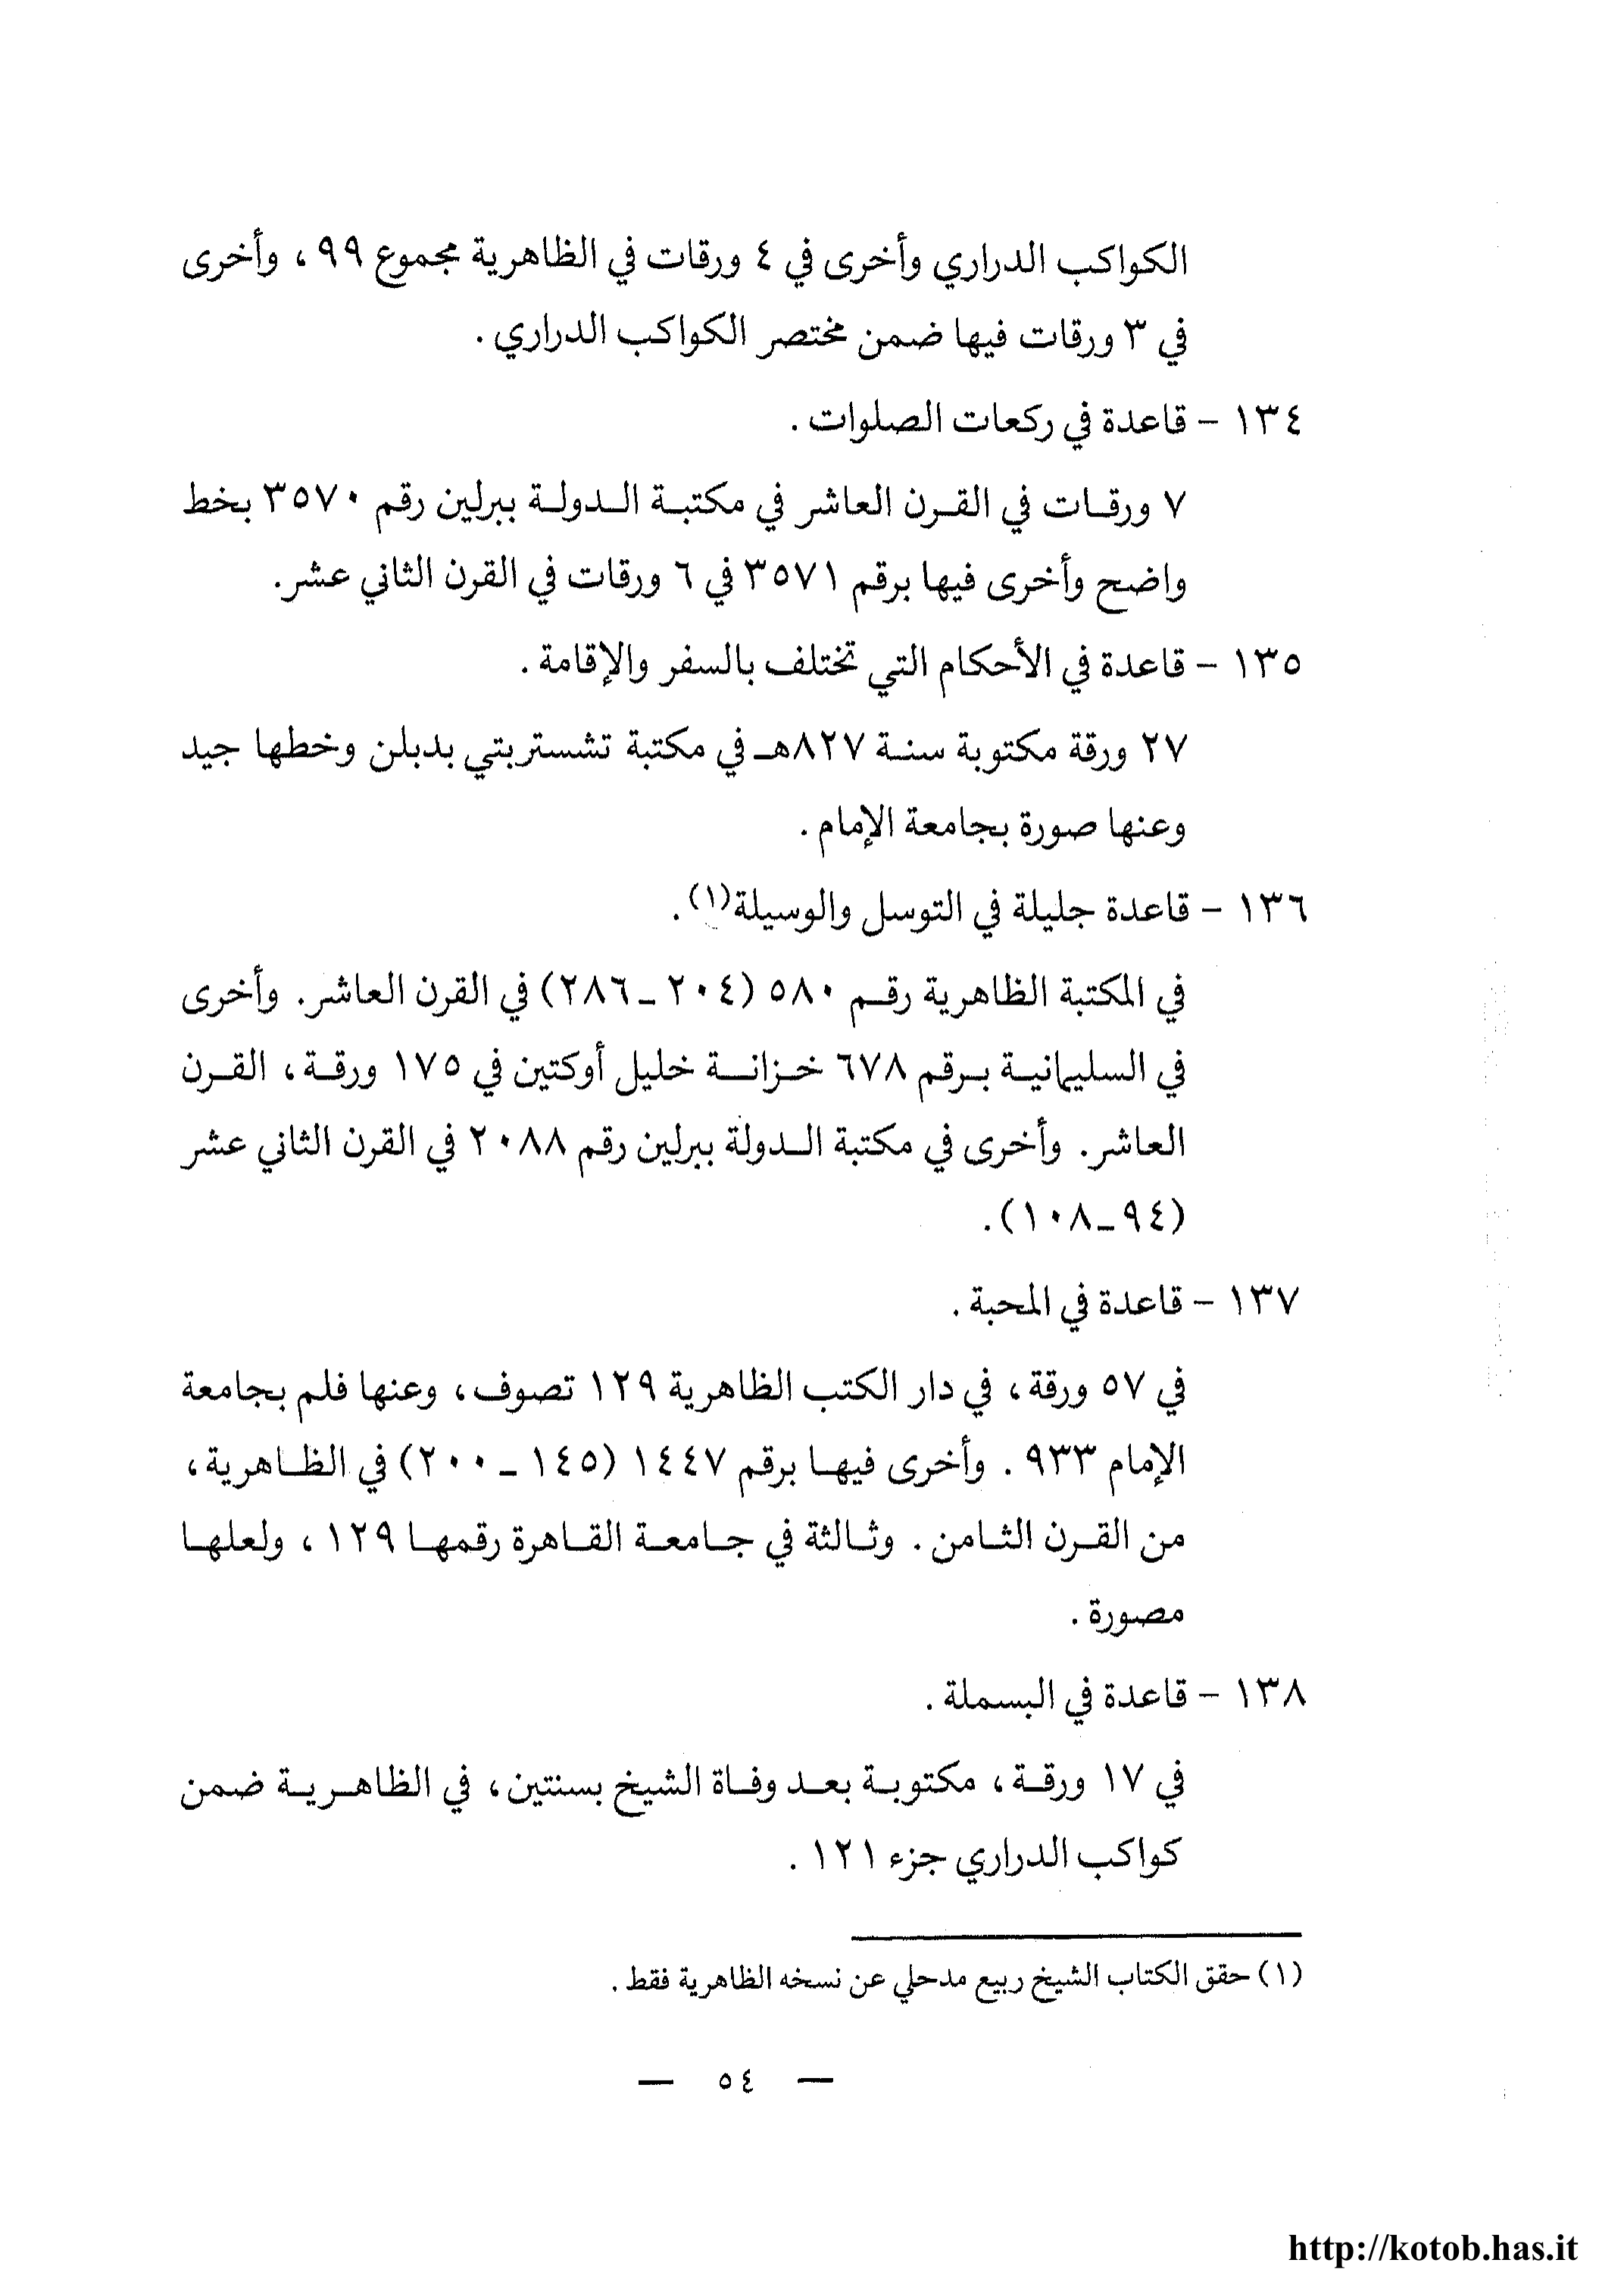 الكواكب الدراري وأخرى في ٤ ورقات في الظاهرية مجموع ٩٩ ، وأخرى
في ٣ ورقات فيها ضمن مختصر الكواكب الدراري .
١٣٤ – قاعدة في ركعات الصلوات .
٧ ورقات في القرن العاشر في مكتبة الدولة ببرلين رقم ٣٥٧٠ بخط
واضح وأخرى فيها برقم ٣٥٧١ في ٦ ورقات في القرن الثاني عشر.
١٣٥ – قاعدة في الأحكام التي تختلف بالسفر والإقامة .
٢٧ ورقة مكتوبة سنة ٨٢٧هـ في مكتبة تشستربتي بدبلن وخطها جيد
وعنها صورة بجامعة الإمام .
١٣٦ – قاعدة جليلة في التوسل والوسيلة(١).
في المكتبة الظاهرية رقم ٥٨٠ (٢٠٤ – ٢٨٦) في القرن العاشر. وأخرى
في السليمانية برقم ٦٧٨ خزانة خليل أوكتين في ١٧٥ ورقة ، القرن
العاشر. وأخرى في مكتبة الدولة ببرلين رقم ٢٠٨٨ في القرن الثاني عشر
(٩٤ – ١٠٨).
١٣٧ – قاعدة في المحبة .
في ٥٧ ورقة ، في دار الكتب الظاهرية ١٢٩ تصوف ، وعنها فلم بجامعة
الإمام ٩٣٣ . وأخرى فيها برقم ١٤٤٧ (١٤٥ – ٢٠٠) في الظاهرية ،
من القرن الثامن . وثالثة في جامعة القاهرة رقمها ١٢٩ ، ولعلها
مصورة .
١٣٨ – قاعدة في البسملة .
في ١٧ ورقة ، مكتوبة بعد وفاة الشيخ بسنتين ، في الظاهرية ضمن
كواكب الدراري جزء ١٢١ .
(١) حقق الكتاب الشيخ ربيع مدحلي عن نسخه الظاهرية فقط .
— ٥٤ —
http://kotob.has.it